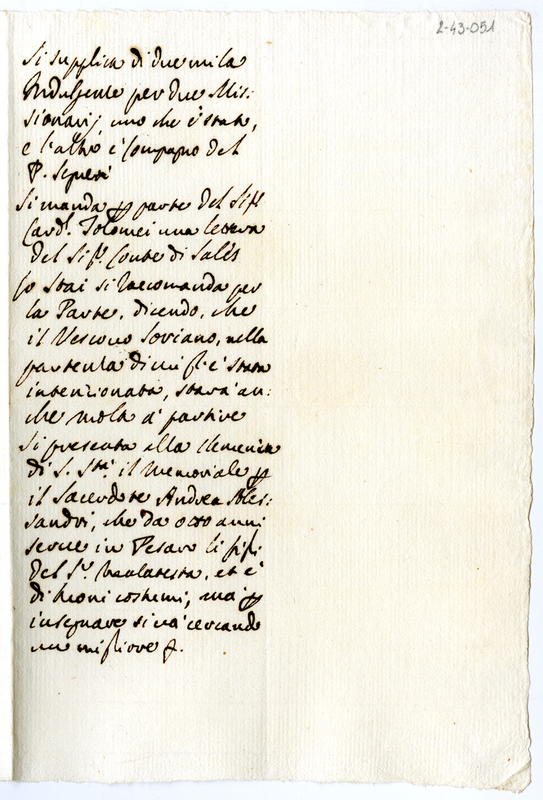 2-43-051
Si supplica di due mila
Indulgenze per due Mis:
sionarij uno che è stato,
e l'altro è Compagno del
P. Segneri
Si manda p parte del Sig.
Card. Tolomei una lettera
del Sig. Conte di Sales
Stai si raccomanda per
la Parte, dicendo, che
il Vescovo Soriano, nella
partenza di è stata
intenzionata, stara' an:
che molto a' partire
Si presenta alla clemenza
di S. Sta. il memoriale p
il Sacerdote Andrea Ales:
sandri, che da otto anni
serve in Pesaro li figli
del S. Malatesta, et e'
di buoni costumi, ma p
insegnare si va' cercando
un migliore